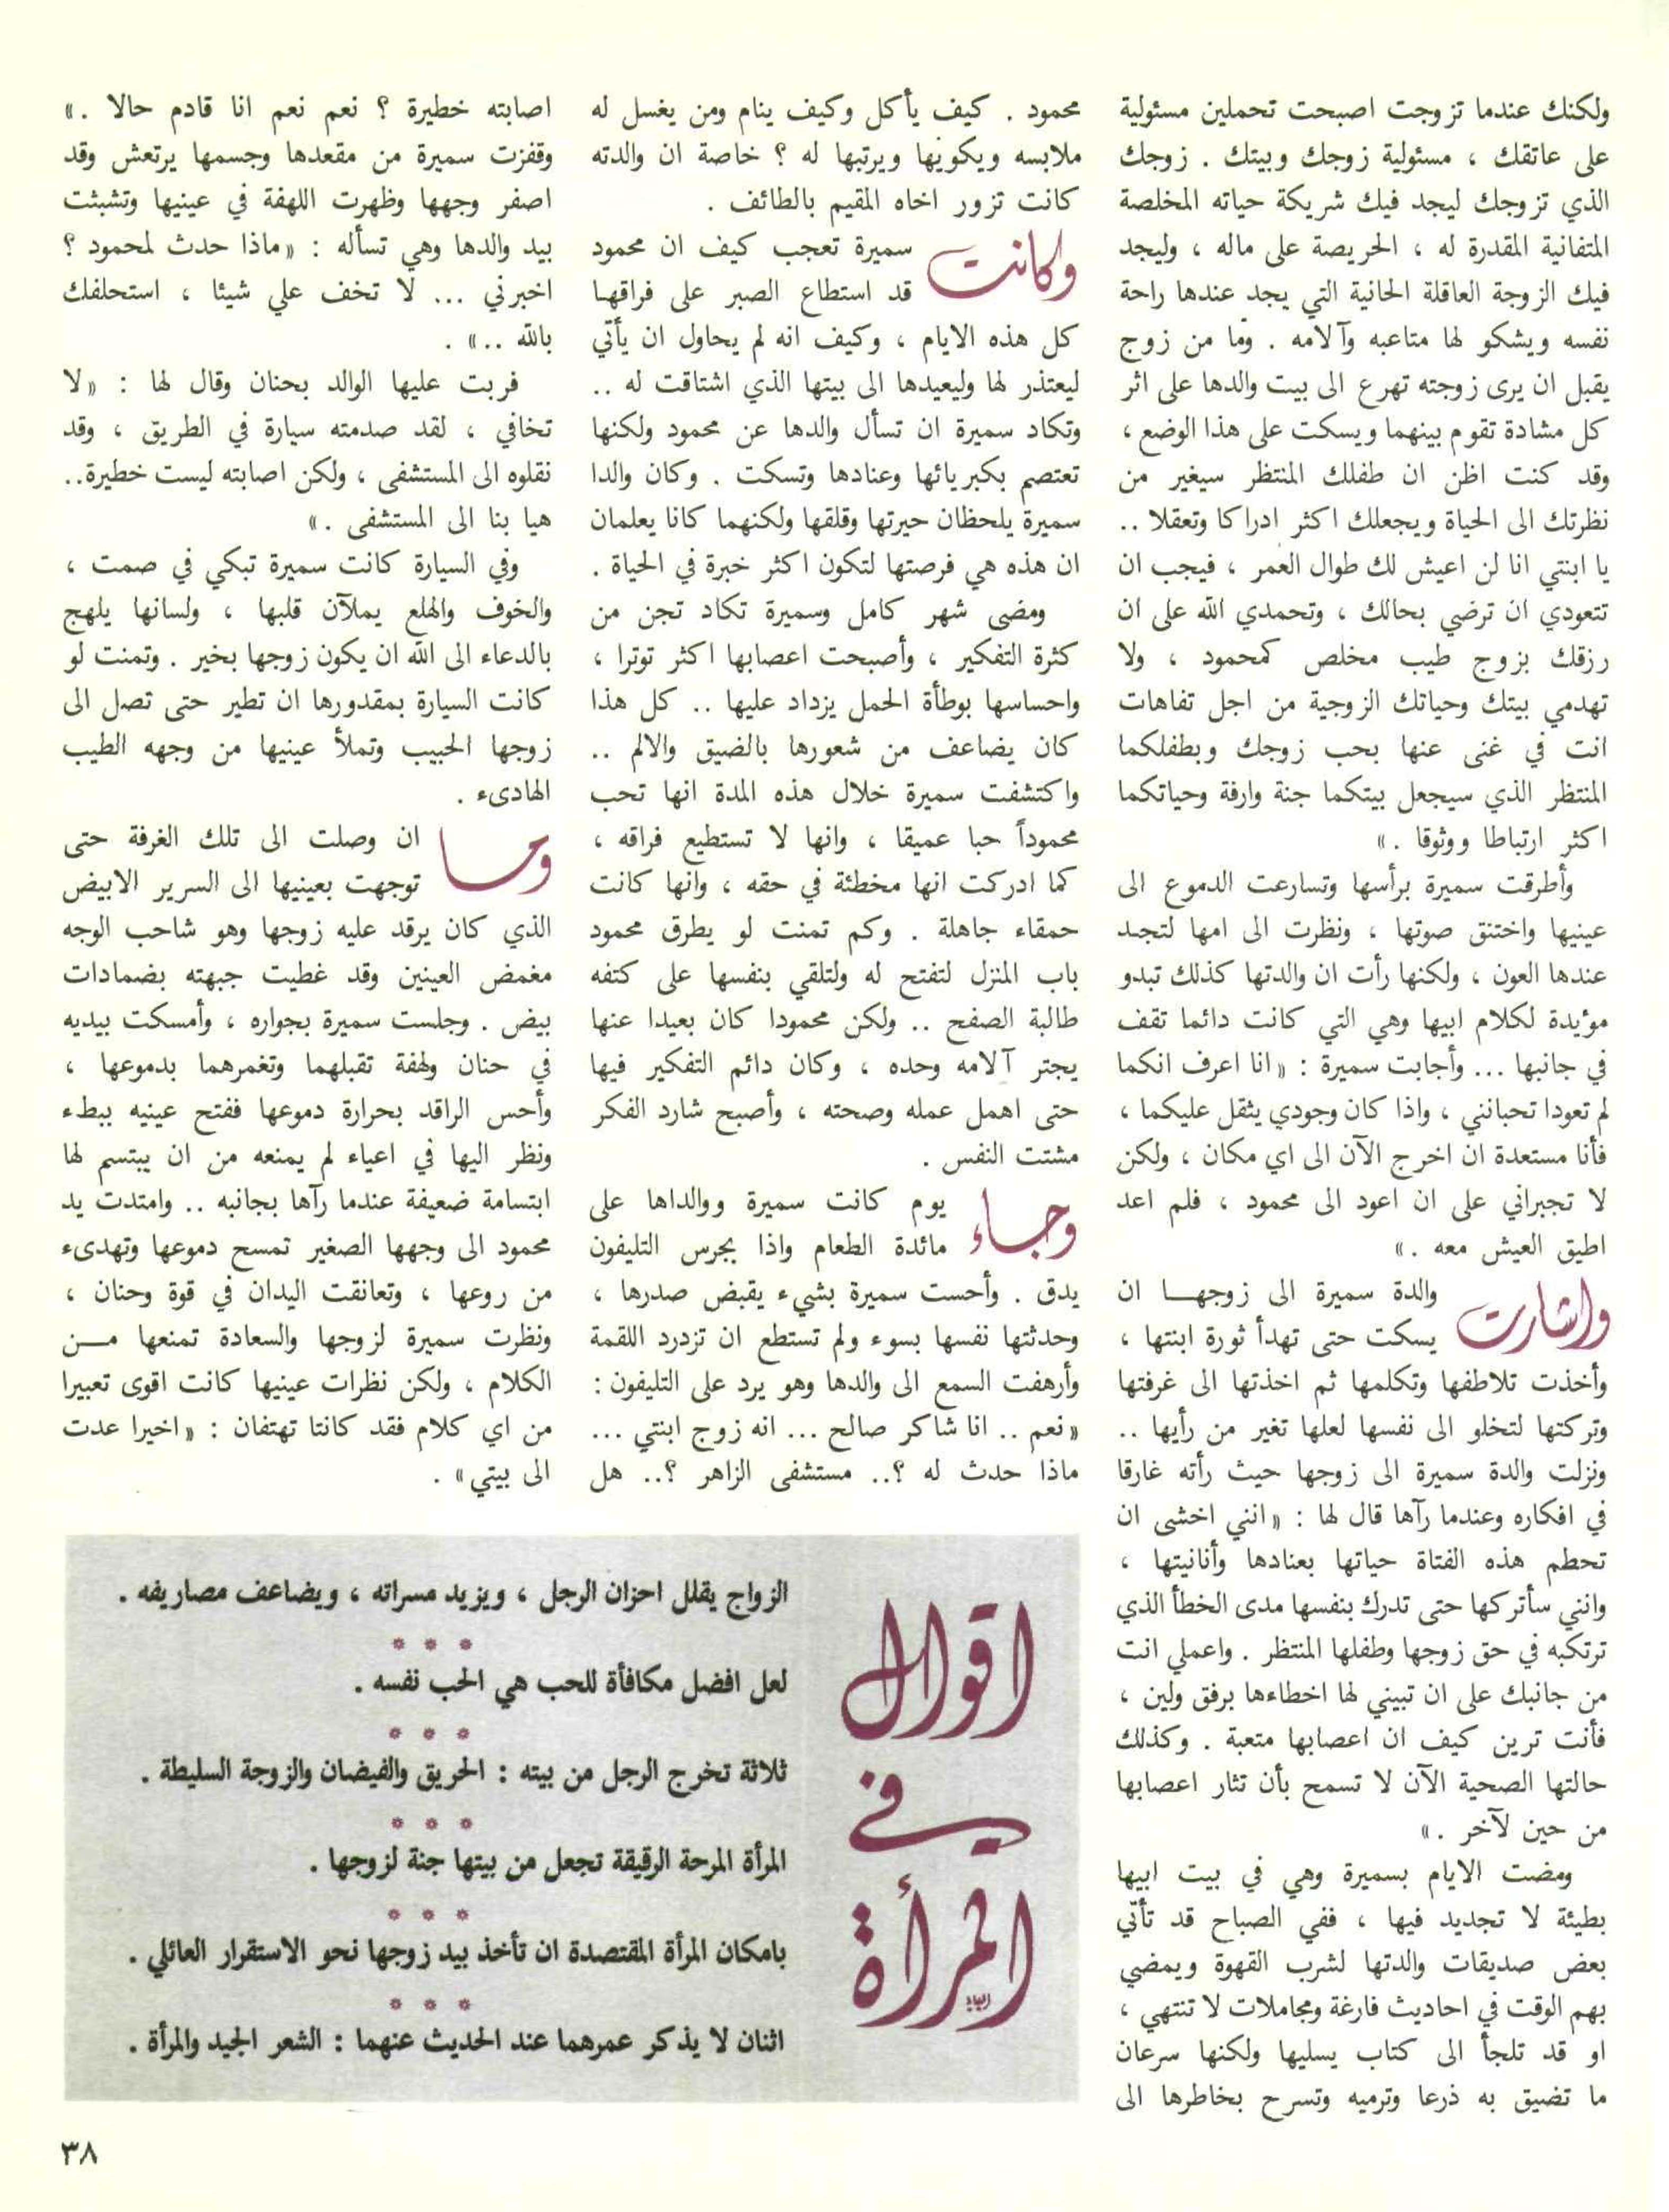 ولكنك عندما تزوجت اصبحت تحملين مسئولية
على عاتقك ، مسئولية زوجك وبيتك . زوجك
الذي تزوجك ليجد فيك شريكة حياته المخلصة
المتفانية المقدرة له ، الحريصة على ماله ، وليجد
فيك الزوجة العاقلة الحانية التي يجد عندها راحة
نفسه ويشكو لها متاعبه وآلامه . وما من زوج
يقبل ان يرى زوجته تهرع الى بيت والدها على اثر
كل مشادة تقوم بينهما ويسكت على هذا الوضع ،
وقد كنت اظن ان طفلك المنتظر سيغير من
نظرتك الى الحياة ويجعلك اكثر ادراكا وتعقلا ..
يا ابنتي انا لن اعيش لك طوال العمر ، فيجب ان
تتعودي ان ترضي بحالك ، وتحمدي الله على ان
رزقك بزوج طيب مخلص كمحمود ، ولا
تهدمي بيتك وحياتك الزوجية من اجل تفاهات
انت في غنى عنها بحب زوجك وبطفلكما
المنتظر الذي سيجعل بيتكما جنة وارفة وحياتكما
اكثر ارتباطا ووثوقا . »
وأطرقت سميرة برأسها وتسارعت الدموع الى
عينيها واختنق صوتها ، ونظرت الى امها لتجد
عندها العون ، ولكنها رأت ان والدتها كذلك تبدو
مؤيدة لكلام ابيها وهي التي كانت دائما تقف
في جانبها ... وأجابت سميرة : « انا اعرف انكما
لم تعودا تحبانني ، واذا كان وجودي يثقل عليكما ،
فأنا مستعدة ان اخرج الآن الى اي مكان ، ولكن
لا تجبراني على ان اعود الى محمود ، فلم اعد
اطيق العيش معه . »
واشارت والدة سميرة الى زوجهـا ان
يسكت حتى تهدأ ثورة ابنتها ،
وأخذت تلاطفها وتكلمها ثم اخذتها الى غرفتها
وتركتها لتخلو الى نفسها لعلها تغير من رأيها ..
ونزلت والدة سميرة الى زوجها حيث رأته غارقا
في افكاره وعندما رآها قال لها : « انني اخشى ان
تحطم هذه الفتاة حياتها بعنادها وأنانيتها ،
وانني سأتركها حتى تدرك بنفسها مدى الخطأ الذي
ترتكبه في حق زوجها وطفلها المنتظر . واعملي انت
من جانبك على ان تبيني لها اخطاءها برفق ولين ،
فأنت ترين كيف ان اعصابها متعبة . وكذلك
حالتها الصحية الآن لا تسمح بأن تثار اعصابها
من حين لآخر . »
ومضت الايام بسميرة وهي في بيت ابيها
بطيئة لا تجديد فيها ، ففي الصباح قد تأتي
بعض صديقات والدتها لشرب القهوة ويمضي
بهم الوقت في احاديث فارغة ومجاملات لا تنتهي ،
او قد تلجأ الى كتاب يسليها ولكنها سرعان
ما تضيق به ذرعا وترميه وتسرح بخاطرها الى
محمود . كيف يأكل وكيف ينام ومن يغسل له
ملابسه ويكويها ويرتبها له ؟ خاصة ان والدته
كانت تزور اخاه المقيم بالطائف .
وكانت سميرة تعجب كيف ان محمود
قد استطاع الصبر على فراقها
كل هذه الايام ، وكيف انه لم يحاول ان يأتي
ليعتذر لها وليعيدها الى بيتها الذي اشتاقت له ..
وتكاد سميرة ان تسأل والدها عن محمود ولكنها
تعتصم بكبريائها وعنادها وتسكت . وكان والدا
سميرة يلحظان حيرتها وقلقها ولكنهما كانا يعلمان
ان هذه هي فرصتها لتكون اكثر خبرة في الحياة .
ومضى شهر كامل وسميرة تكاد تجن من
كثرة التفكير ، وأصبحت اعصابها اكثر توترا ،
واحساسها بوطأة الحمل يزداد عليها .. كل هذا
كان يضاعف من شعورها بالضيق والالم ..
واكتشفت سميرة خلال هذه المدة انها تحب
محموداً حبا عميقا ، وانها لا تستطيع فراقه ،
كما ادركت انها مخطئة في حقه ، وانها كانت
حمقاء جاهلة . وكم تمنت لو يطرق محمود
باب المنزل لتفتح له ولتلقي بنفسها على كتفه
طالبة الصفح .. ولكن محمودا كان بعيدا عنها
يجتر آلامه وحده ، وكان دائم التفكير فيها
حتى اهمل عمله وصحته ، وأصبح شارد الفكر
مشتت النفس .
وجاء يوم كانت سميرة ووالداها على
مائدة الطعام واذا بجرس التليفون
يدق . وأحست سميرة بشيء يقبض صدرها ،
وحدثتها نفسها بسوء ولم تستطع ان تزدرد اللقمة
وأرهفت السمع الى والدها وهو يرد على التليفون :
« نعم .. انا شاكر صالح ... انه زوج ابنتي ...
ماذا حدث له ؟.. مستشفى الزاهر ؟.. هل
اصابته خطيرة ؟ نعم نعم انا قادم حالا . »
وقفزت سميرة من مقعدها وجسمها يرتعش وقد
اصفر وجهها وظهرت اللهفة في عينيها وتشبثت
بيد والدها وهي تسأله : « ماذا حدث لمحمود ؟
اخبرني ... لا تخف علي شيئا ، استحلفك
بالله .. » .
فربت عليها الوالد بحنان وقال لها : « لا
تخافي ، لقد صدمته سيارة في الطريق ، وقد
نقلوه الى المستشفى ، ولكن اصابته ليست خطيرة..
هيا بنا الى المستشفى . »
وفي السيارة كانت سميرة تبكي في صمت ،
والخوف والهلع يملآن قلبها ، ولسانها يلهج
بالدعاء الى الله ان يكون زوجها بخير . وتمنت لو
كانت السيارة بمقدورها ان تطير حتى تصل الى
زوجها الحبيب وتملأ عينيها من وجهه الطيب
الهادىء .
وما ان وصلت الى تلك الغرفة حتى
توجهت بعينيها الى السرير الابيض
الذي كان يرقد عليه زوجها وهو شاحب الوجه
مغمض العينين وقد غطيت جبهته بضمادات
بيض . وجلست سميرة بجواره ، وأمسكت بيديه
في حنان ولهفة تقبلهما وتغمرهما بدموعها ،
وأحس الراقد بحرارة دموعها ففتح عينيه ببطء
ونظر اليها في اعياء لم يمنعه من ان يبتسم لها
ابتسامة ضعيفة عندما رآها بجانبه .. وامتدت يد
محمود الى وجهها الصغير تمسح دموعها وتهدىء
من روعها ، وتعانقت اليدان في قوة وحنان ،
ونظرت سميرة لزوجها والسعادة تمنعها مــن
الكلام ، ولكن نظرات عينيها كانت اقوى تعبيرا
من اي كلام فقد كانتا تهتفان : « اخيرا عدت
الى بيتي » .
اقوال
في
المرأة
الزواج يقلل احزان الرجل ، ويزيد مسراته ، ويضاعف مصاريفه .
لعل افضل مكافأة للحب هي الحب نفسه .
ثلاثة تخرج الرجل من بيته : الحريق والفيضان والزوجة السليطة .
المرأة المرحة الرقيقة تجعل من بيتها جنة لزوجها .
بامكان المرأة المقتصدة ان تأخذ بيد زوجها نحو الاستقرار العائلي .
اثنان لا يذكر عمرهما عند الحديث عنهما : الشعر الجيد والمرأة .
٣٨